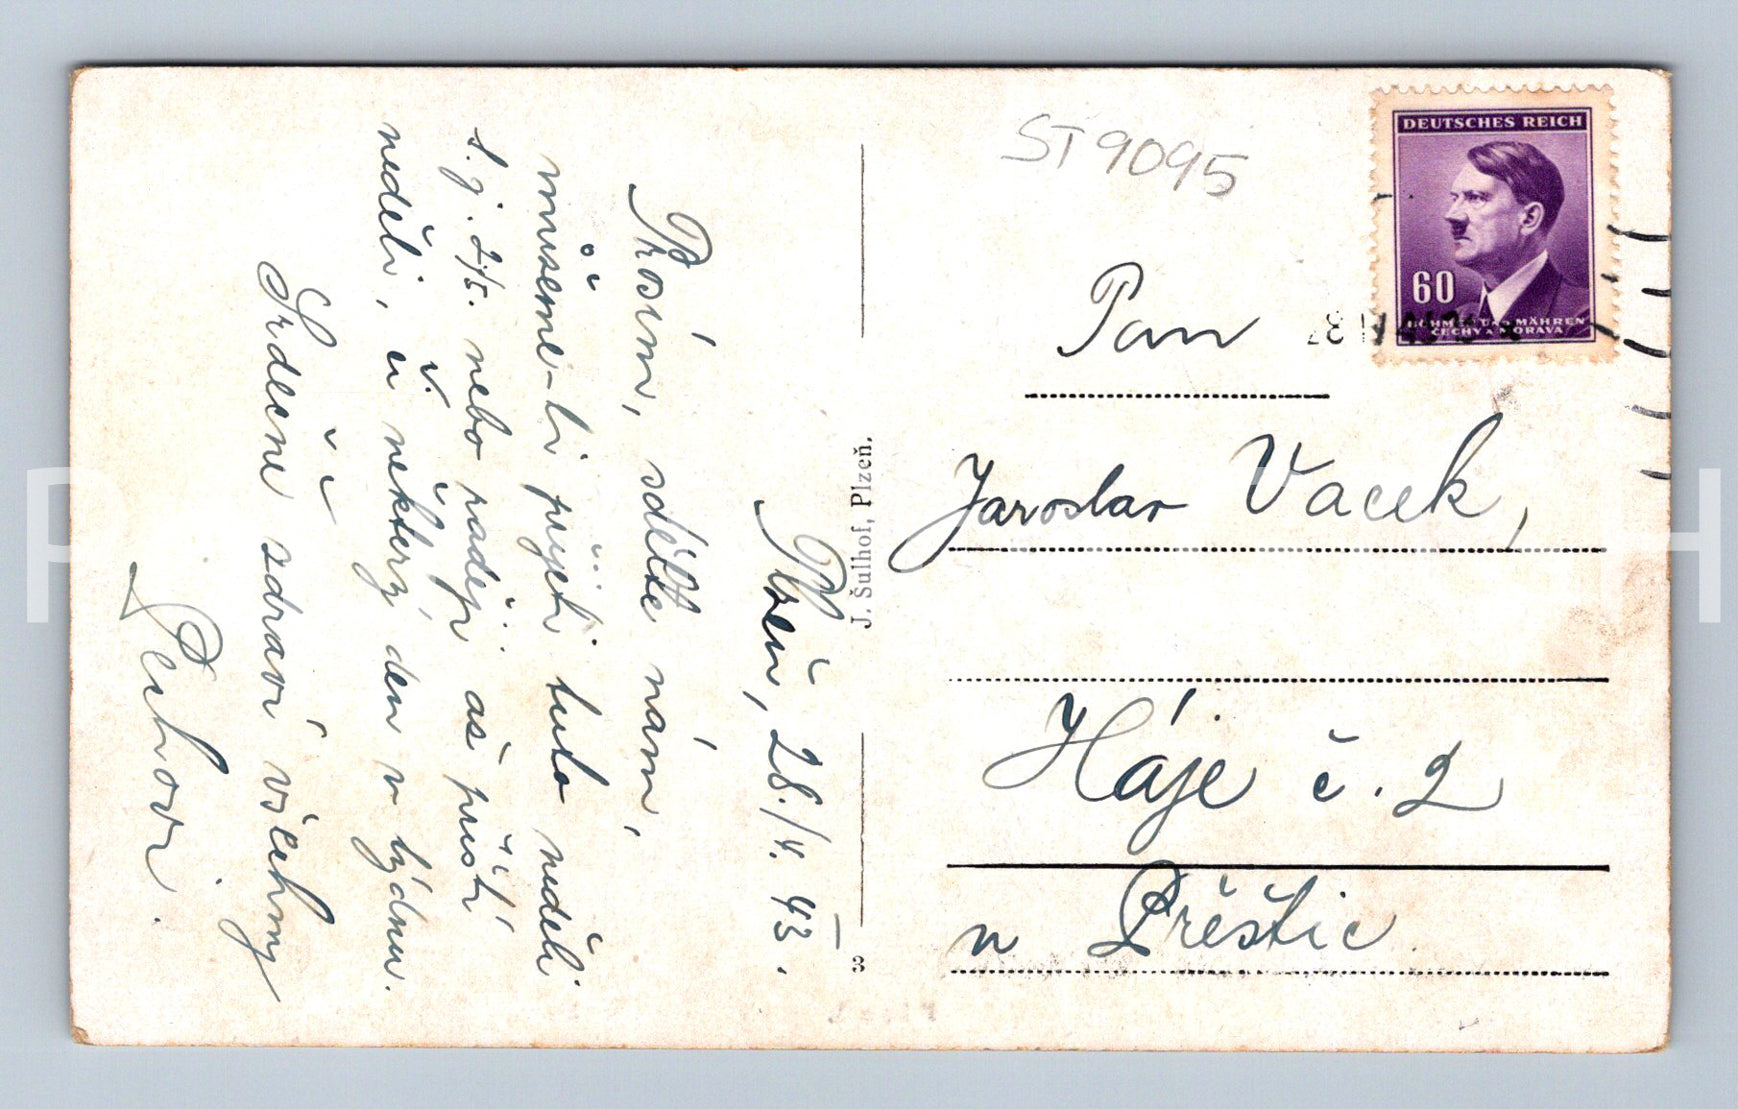 Plzeň, 28./4. 43.
Prosím, sdělte nám,
můžeme-li přijeti tuto neděli
t.j. 2/5. nebo raději až příští
neděli, či některý den v týdnu.
Srdečně zdraví všechny
J. Šulhof, Plzeň.
3
ST 9095
DEUTSCHES REICH
60
BÖHMEN UND MÄHREN
ČECHY A MORAVA
Pan
Jaroslav Vacek,
Háje č. 2
u Přeštic